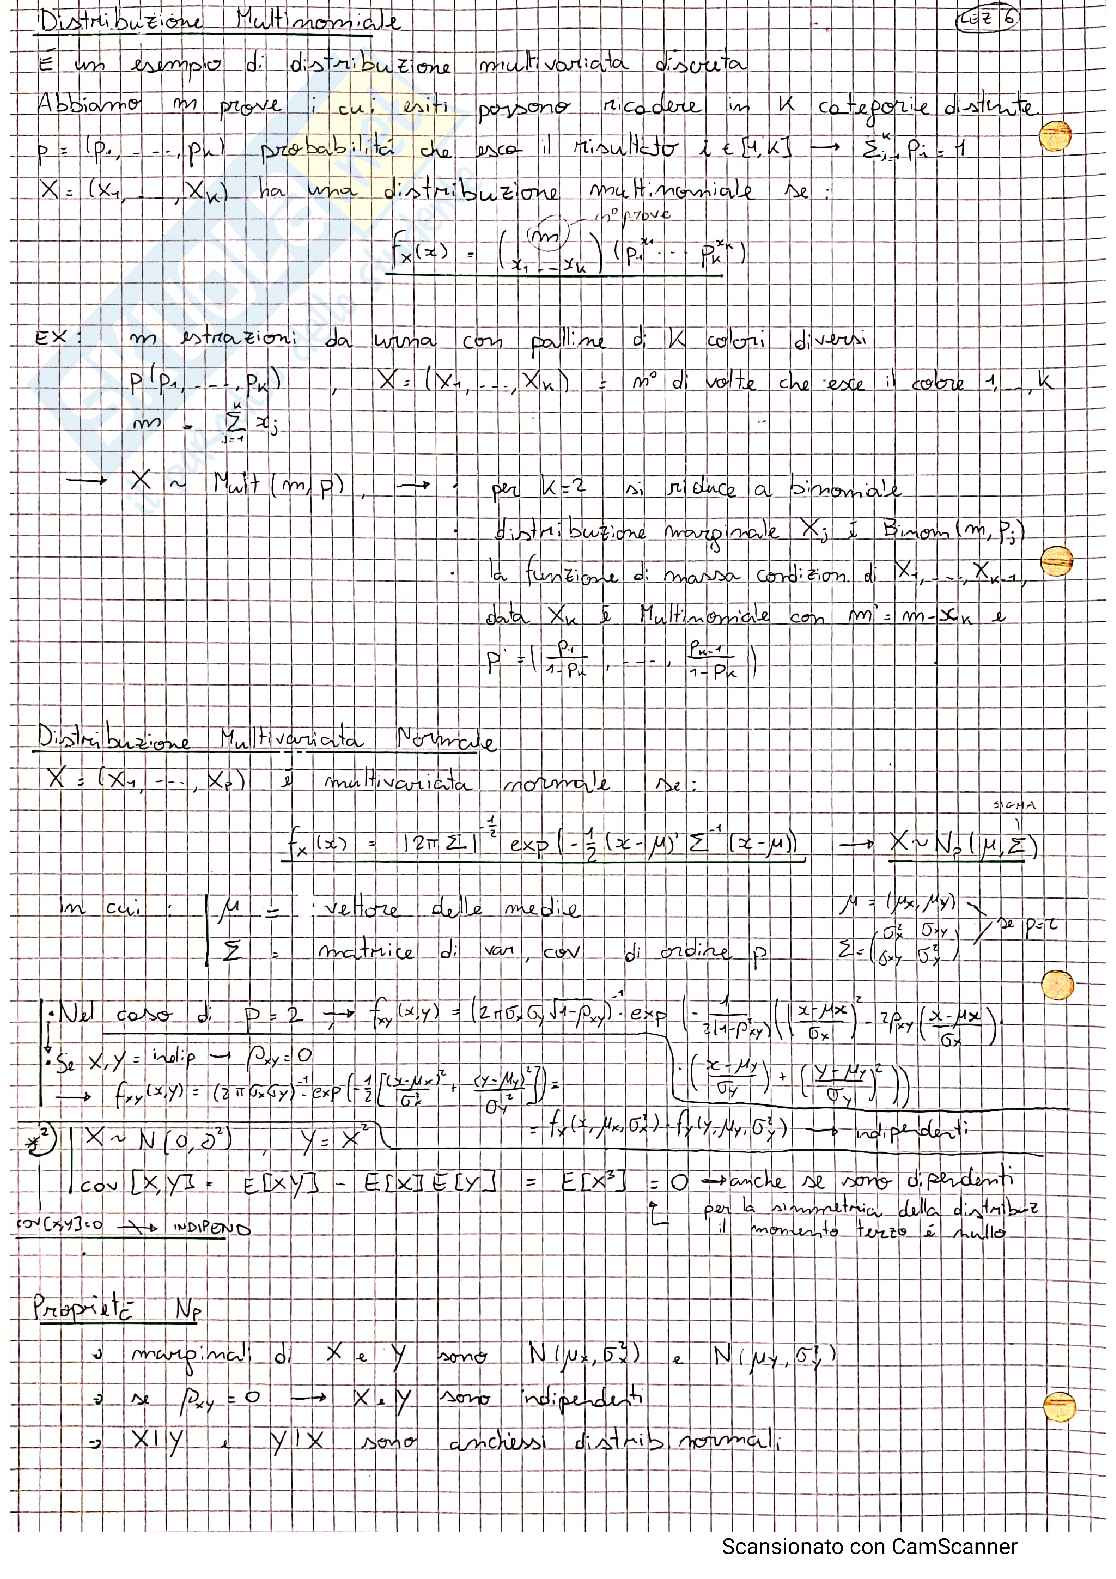 Distribuzione Multinomiale
LEZ 6
È un esempio di distribuzione multivariata discreta
Abbiamo m prove i cui esiti possono ricadere in K categorie distinte
p = (p₁, ..., pₖ) probabilità che esca il risultato i ∈ [1, K] → Σᵢ₌₁ᵏ pᵢ = 1
X = (X₁, ..., Xₖ) ha una distribuzione multinomiale se:
n° prove
fₓ(x) = (m / x₁ ... xₖ) (p₁^x₁ ... pₖ^xₖ)
EX: m estrazioni da urna con palline di K colori diversi
p(p₁, ..., pₖ), X = (X₁, ..., Xₖ) = n° di volte che esce il colore 1, ..., K
m = Σⱼ₌₁ᵏ xⱼ
→ X ~ Mult(m, p), → · per K=2 si riduce a binomiale
· distribuzione marginale Xⱼ è Binom(m, pⱼ)
· la funzione di massa condizion. di X₁, ..., Xₖ₋₁,
data Xₖ è Multinomiale con m' = m-xₖ e
p' = (p₁/(1-pₖ), ..., pₖ₋₁/(1-pₖ))
Distribuzione Multivariata Normale
X = (X₁, ..., Xₚ) è multivariata normale se:
SIGMA
fₓ(x) = |2πΣ|^(-1/2) exp(-1/2 (x-μ)' Σ⁻¹ (x-μ)) → X ~ Nₚ(μ, Σ)
In cui: μ = vettore delle medie μ = (μx, μy)
Σ = matrice di var, cov di ordine p Σ = (σx² σxy / σxy σy²) se p=2
· Nel caso di p = 2 → fxy(x,y) = (2πσxσy√(1-ρxy))⁻¹ · exp(-1/(2(1-ρ²xy)) ((x-μx/σx)² - 2ρxy (x-μx/σx) ·
· Se X,Y = indip → ρxy = 0 · (x-μy/σy) + (y-μy/σy)²))
→ fxy(x,y) = (2πσxσy)⁻¹ · exp(-1/2 [(x-μx)²/σx² + (y-μy)²/σy²]) =
= fx(x, μx, σx²) · fy(y, μy, σy²) → indipendenti
*²) X ~ N(0, σ²), Y = X²
cov[X,Y] = E[XY] - E[X]E[Y] = E[X³] = 0 → anche se sono dipendenti
per la simmetria della distribuz
cov(X,Y)=0 ↛ INDIPEND il momento terzo è nullo
Proprietà Nₚ
→ marginali di X e Y sono N(μx, σx²) e N(μy, σy²)
→ se ρxy = 0 → X e Y sono indipendenti
→ X|Y e Y|X sono anchessi distrib normali
Scansionato con CamScanner